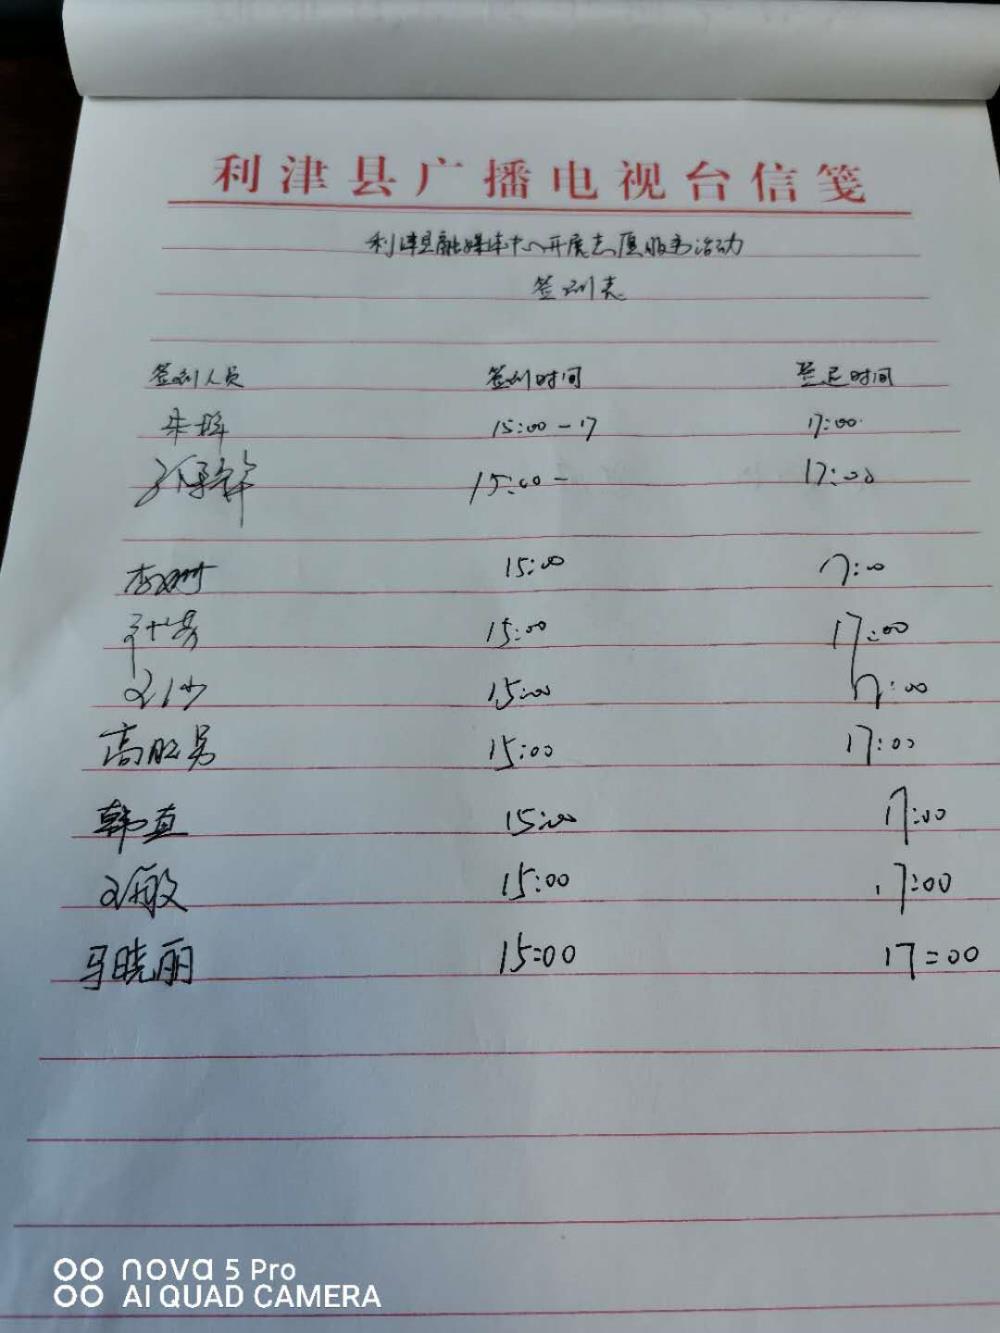 利津县广播电视台信笺
利津县融媒体中心开展志愿服务活动
签到表
签到人员 签到时间 签退时间
朱 15:00-17 17:00
15:00- 17:00
李 15:00 17:00
15:00 17:00
15:00 17:00
高 15:00 17:00
韩直 15:00 17:00
敏 15:00 17:00
马晓丽 15:00 17:00
nova 5 Pro
AI QUAD CAMERA